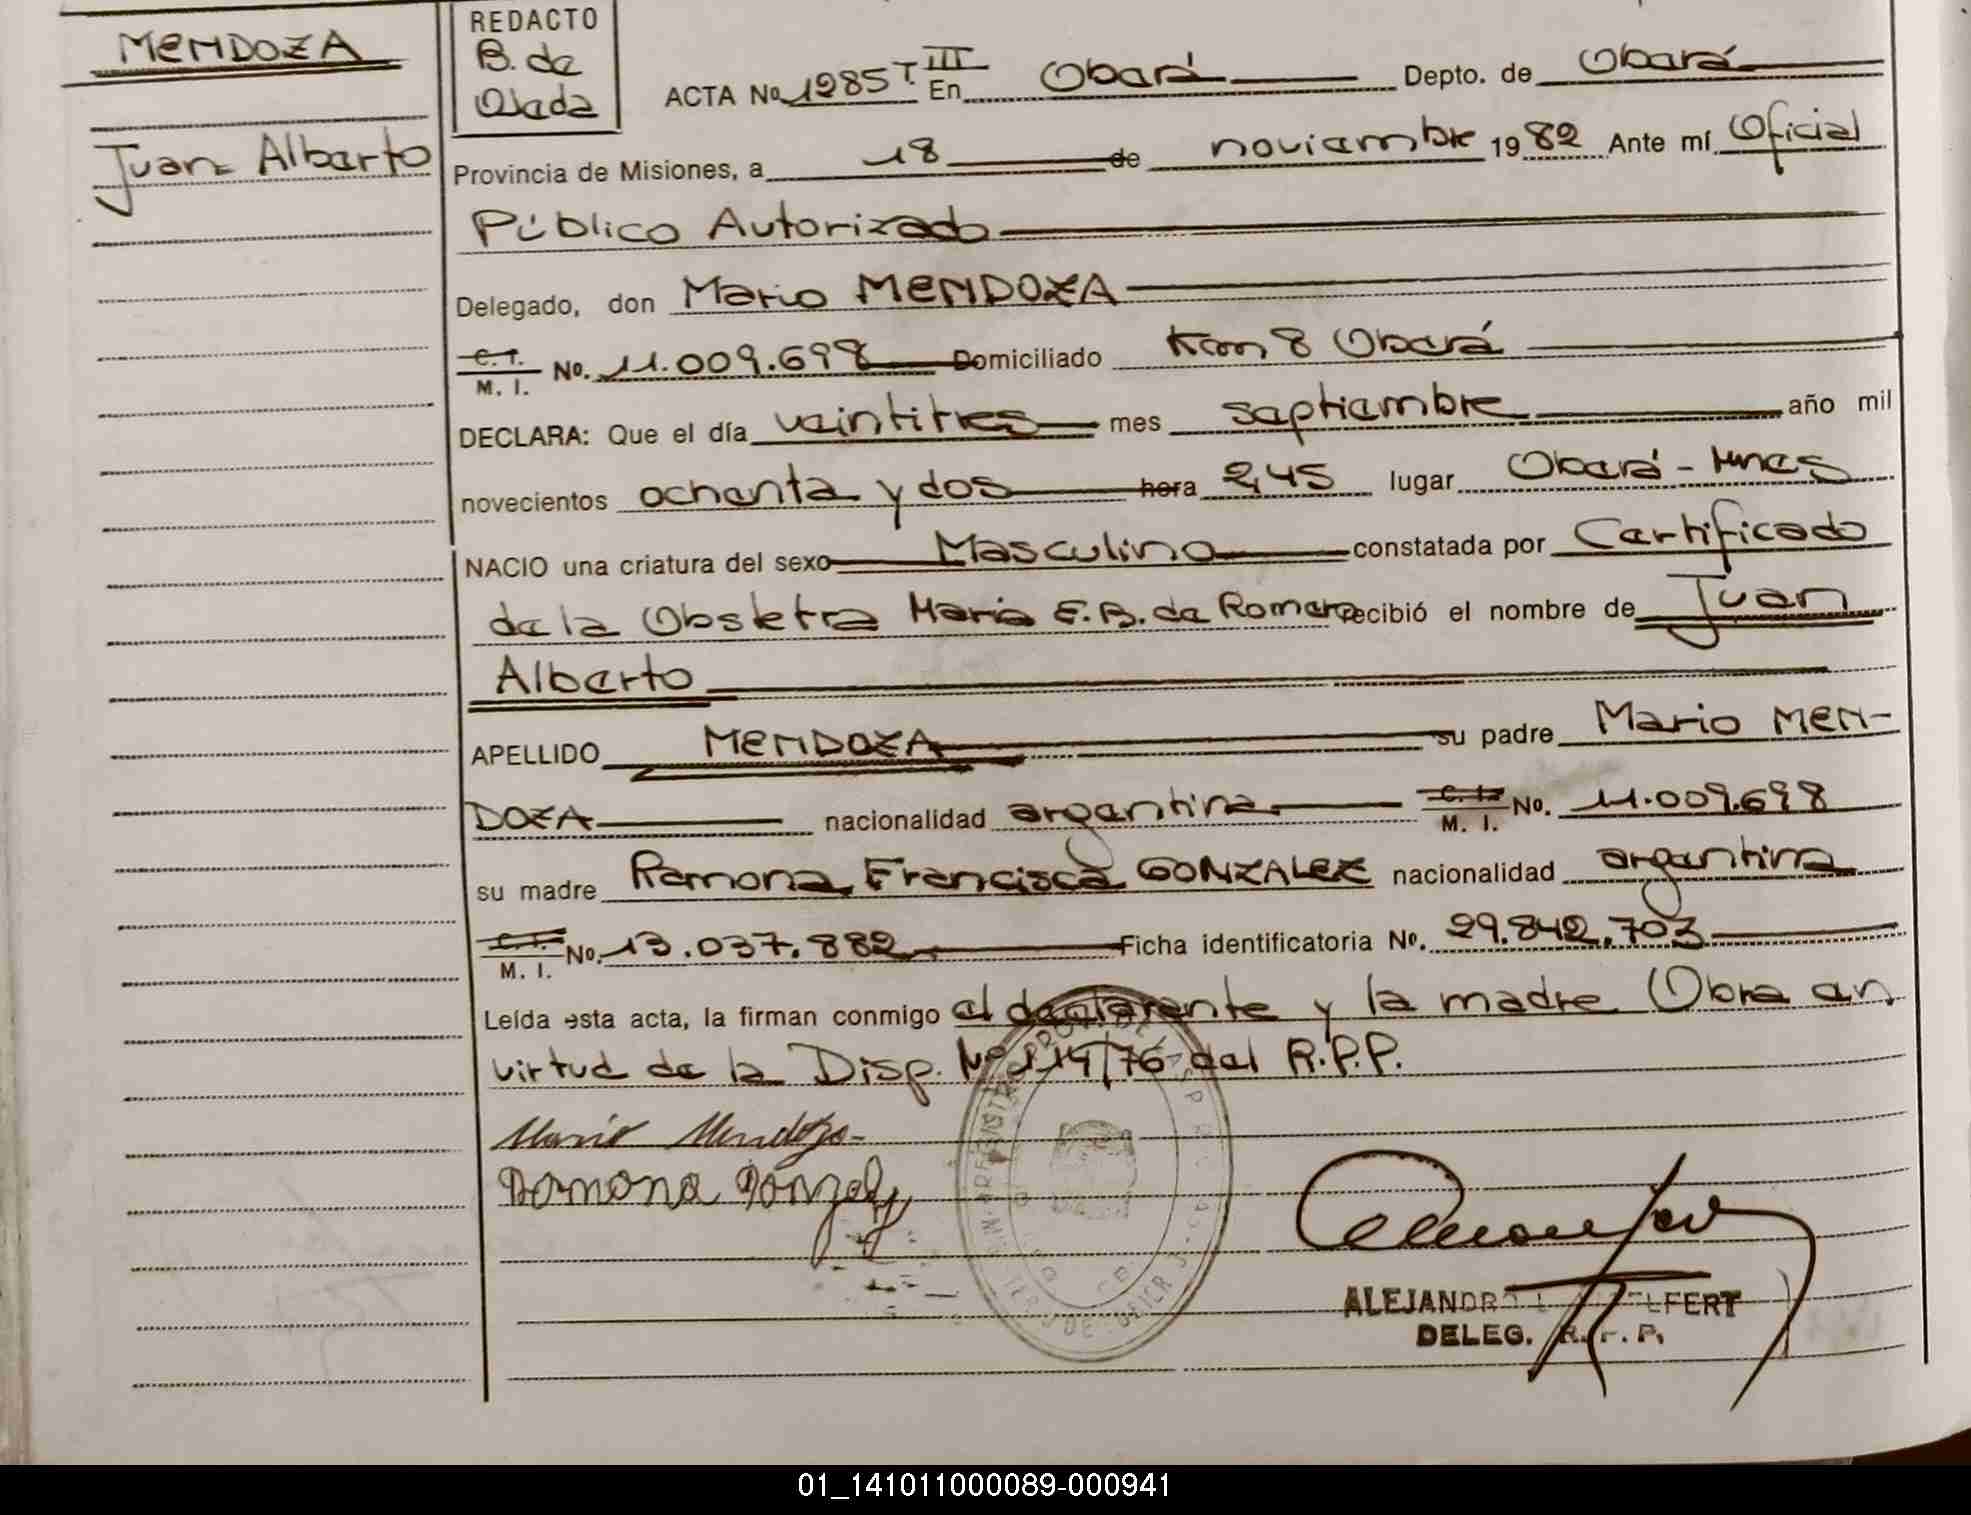 MENDOZA
Juan Alberto
REDACTO
B. de
Ojeda
ACTA No 1285 T III En Oberá Depto. de Oberá
Provincia de Misiones, a 18 de noviembre 1982 Ante mí Oficial
Público Autorizado
Delegado, don Mario MENDOZA
C. I.
M. I. No. 11.009.698 Domiciliado Km 8 Oberá
DECLARA: Que el día veintitres mes septiembre año mil
novecientos ochenta y dos hora 2,45 lugar Oberá - Mnes
NACIO una criatura del sexo Masculino constatada por Certificado
de la Obstetra María E.B. de Romero recibió el nombre de Juan
Alberto
APELLIDO MENDOZA su padre Mario MEN-
DOZA nacionalidad argentina C. I. M. I. No. 11.009.698
su madre Ramona Francisca GONZALEZ nacionalidad argentina
C. I. M. I. No. 13.037.882 Ficha identificatoria No. 29.842.703
Leída esta acta, la firman conmigo el declarante y la madre Obra en
virtud de la Disp. Nº 114/76 del R.P.P.
Mario Mendoza
Ramona Gonzalez
ALEJANDRO LFERT
DELEG. R. P. P.
01_141011000089-000941